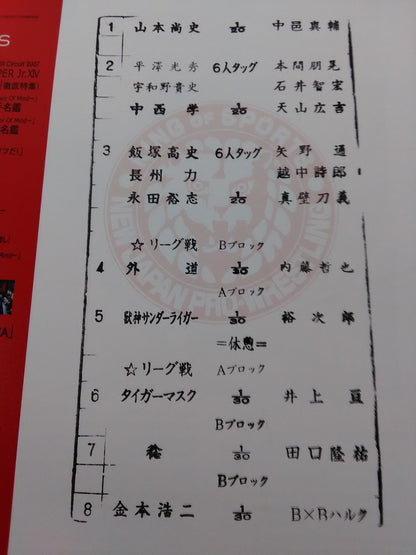 S
er Circuit 2007
PER Jr.XIV
徹底特集!
名鑑
1 山本尚史 1/20 中邑真輔
2 平澤光秀 6人タッグ 本間朋晃
宇和野貴史 石井智宏
中西 学 1/20 天山広吉
3 飯塚高史 6人タッグ 矢野 通
長州 力 越中詩郎
永田裕志 1/20 真壁刀義
☆リーグ戦 Bブロック
4 外 道 1/30 内藤哲也
Aブロック
5 獣神サンダーライガー 1/30 裕次郎
=休憩=
☆リーグ戦 Aブロック
6 タイガーマスク 1/30 井上 亘
Bブロック
7 稔 1/30 田口隆祐
Bブロック
8 金本浩二 1/30 B×Bハルク
KING OF SPORTS
NEW JAPAN PRO-WRESTLING